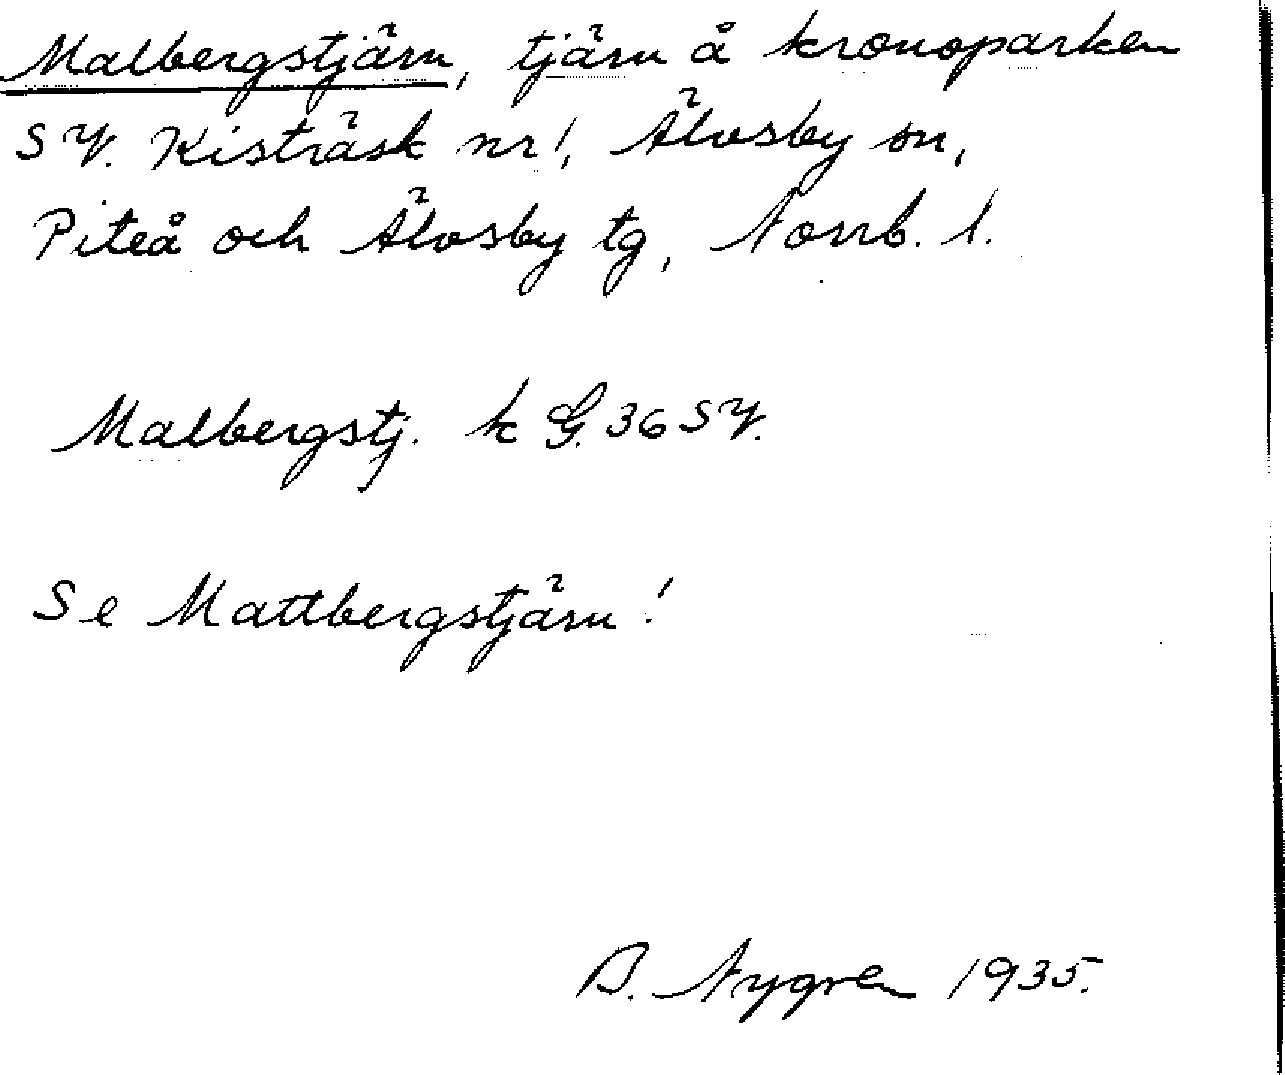 Malbergstjärn, tjärn å kronoparken
SV. Kisträsk nr 1, Älvsby sn,
Piteå och Älvsby tg, Norrb. l.
Malbergstj. k G. 36 SV.
Se Mattbergstjärn!
B. Nygren 1935.